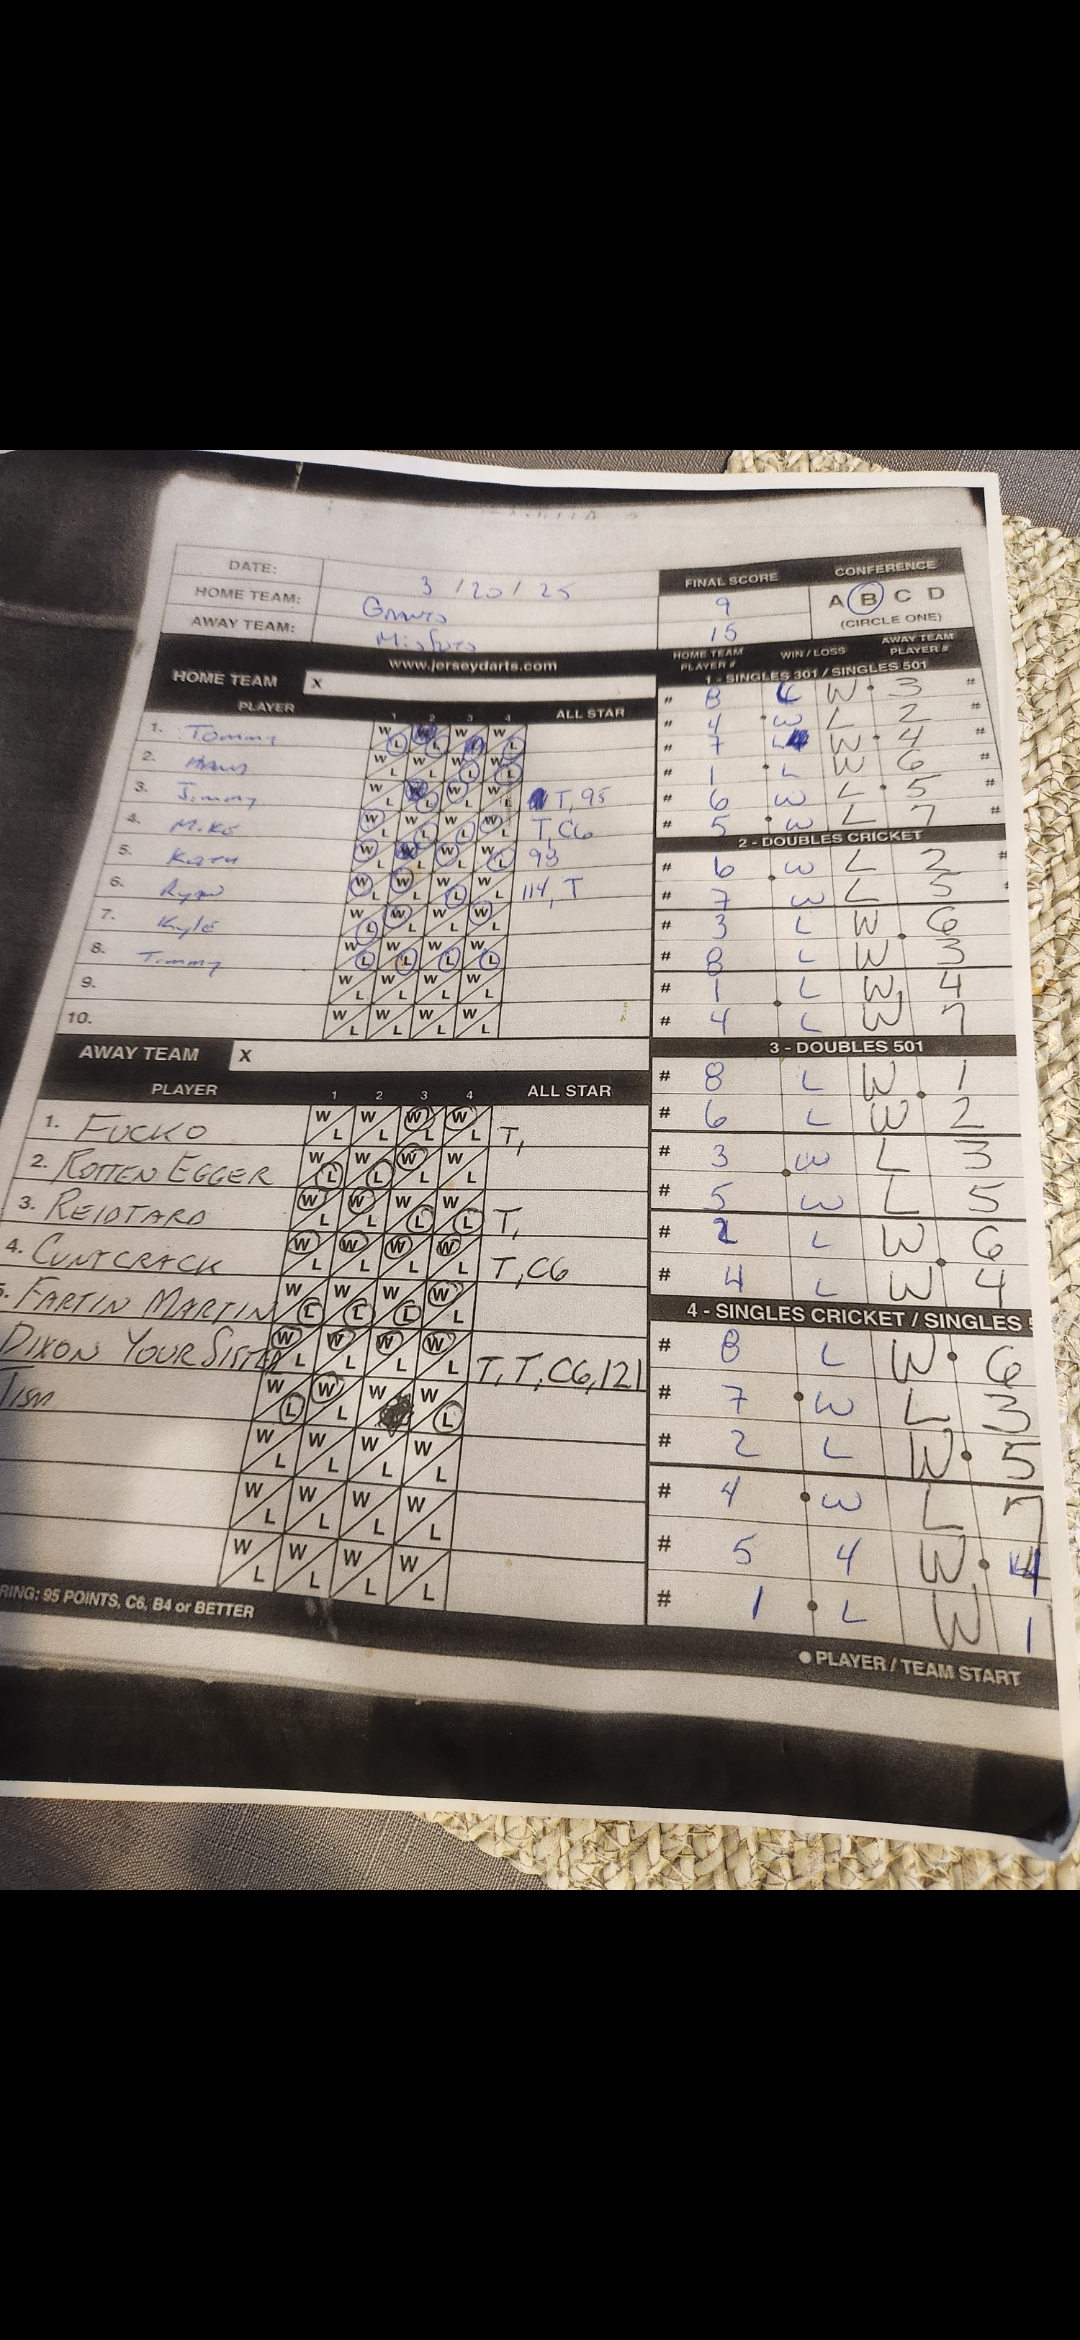 DATE: 3 / 20 / 25
HOME TEAM: Giants
AWAY TEAM: Misfits
FINAL SCORE
9
15
CONFERENCE
A B C D
(CIRCLE ONE)
www.jerseydarts.com
HOME TEAM X
PLAYER 1 2 3 4 ALL STAR
1. Tommy W L W L W L W L
2. W L W L W L W L
3. Jimmy W L W L W L W L T, 95
4. Mike W L W L W L W L T, C6
5. W L W L W L W L 93
6. Ryan W L W L W L W L 114, T
7. Kyle W L W L W L W L
8. Timmy W L W L W L W L
9. W L W L W L W L
10. W L W L W L W L
AWAY TEAM X
PLAYER 1 2 3 4 ALL STAR
1. FUCKO W L W L W L W L T,
2. ROTTEN EGGER W L W L W L W L
3. REIDTARD W L W L W L W L T,
4. CUNTCRACK W L W L W L W L T, C6
5. FARTIN MARTIN W L W L W L W L
DIXON YOUR SISTER W L W L W L W L T, T, C6, 121
TISM W L W L W W L
W L W L W L W L
W L W L W L W L
W L W L W L W L
RING: 95 POINTS, C6, B4 or BETTER
HOME TEAM PLAYER # WIN / LOSS AWAY TEAM PLAYER #
1 - SINGLES 301 / SINGLES 501
# 8 L W 3 #
# 4 W L 2 #
# 7 L W 4 #
# 1 L W 6 #
# 6 W L 5 #
# 5 W L 7 #
2 - DOUBLES CRICKET
# 6 W L 2 #
# 7 W L 5 #
# 3 L W 6
# 8 L W 3
# 1 L W 4
# 4 L W 7
3 - DOUBLES 501
# 8 L W 1
# 6 L W 2
# 3 W L 3
# 5 W L 5
# 2 L W 6
# 4 L W 4
4 - SINGLES CRICKET / SINGLES 5
# 8 L W 6
# 7 W L 3
# 2 L W 5
# 4 W L 7
# 5 4 W 4
# 1 L W 1
● PLAYER / TEAM START